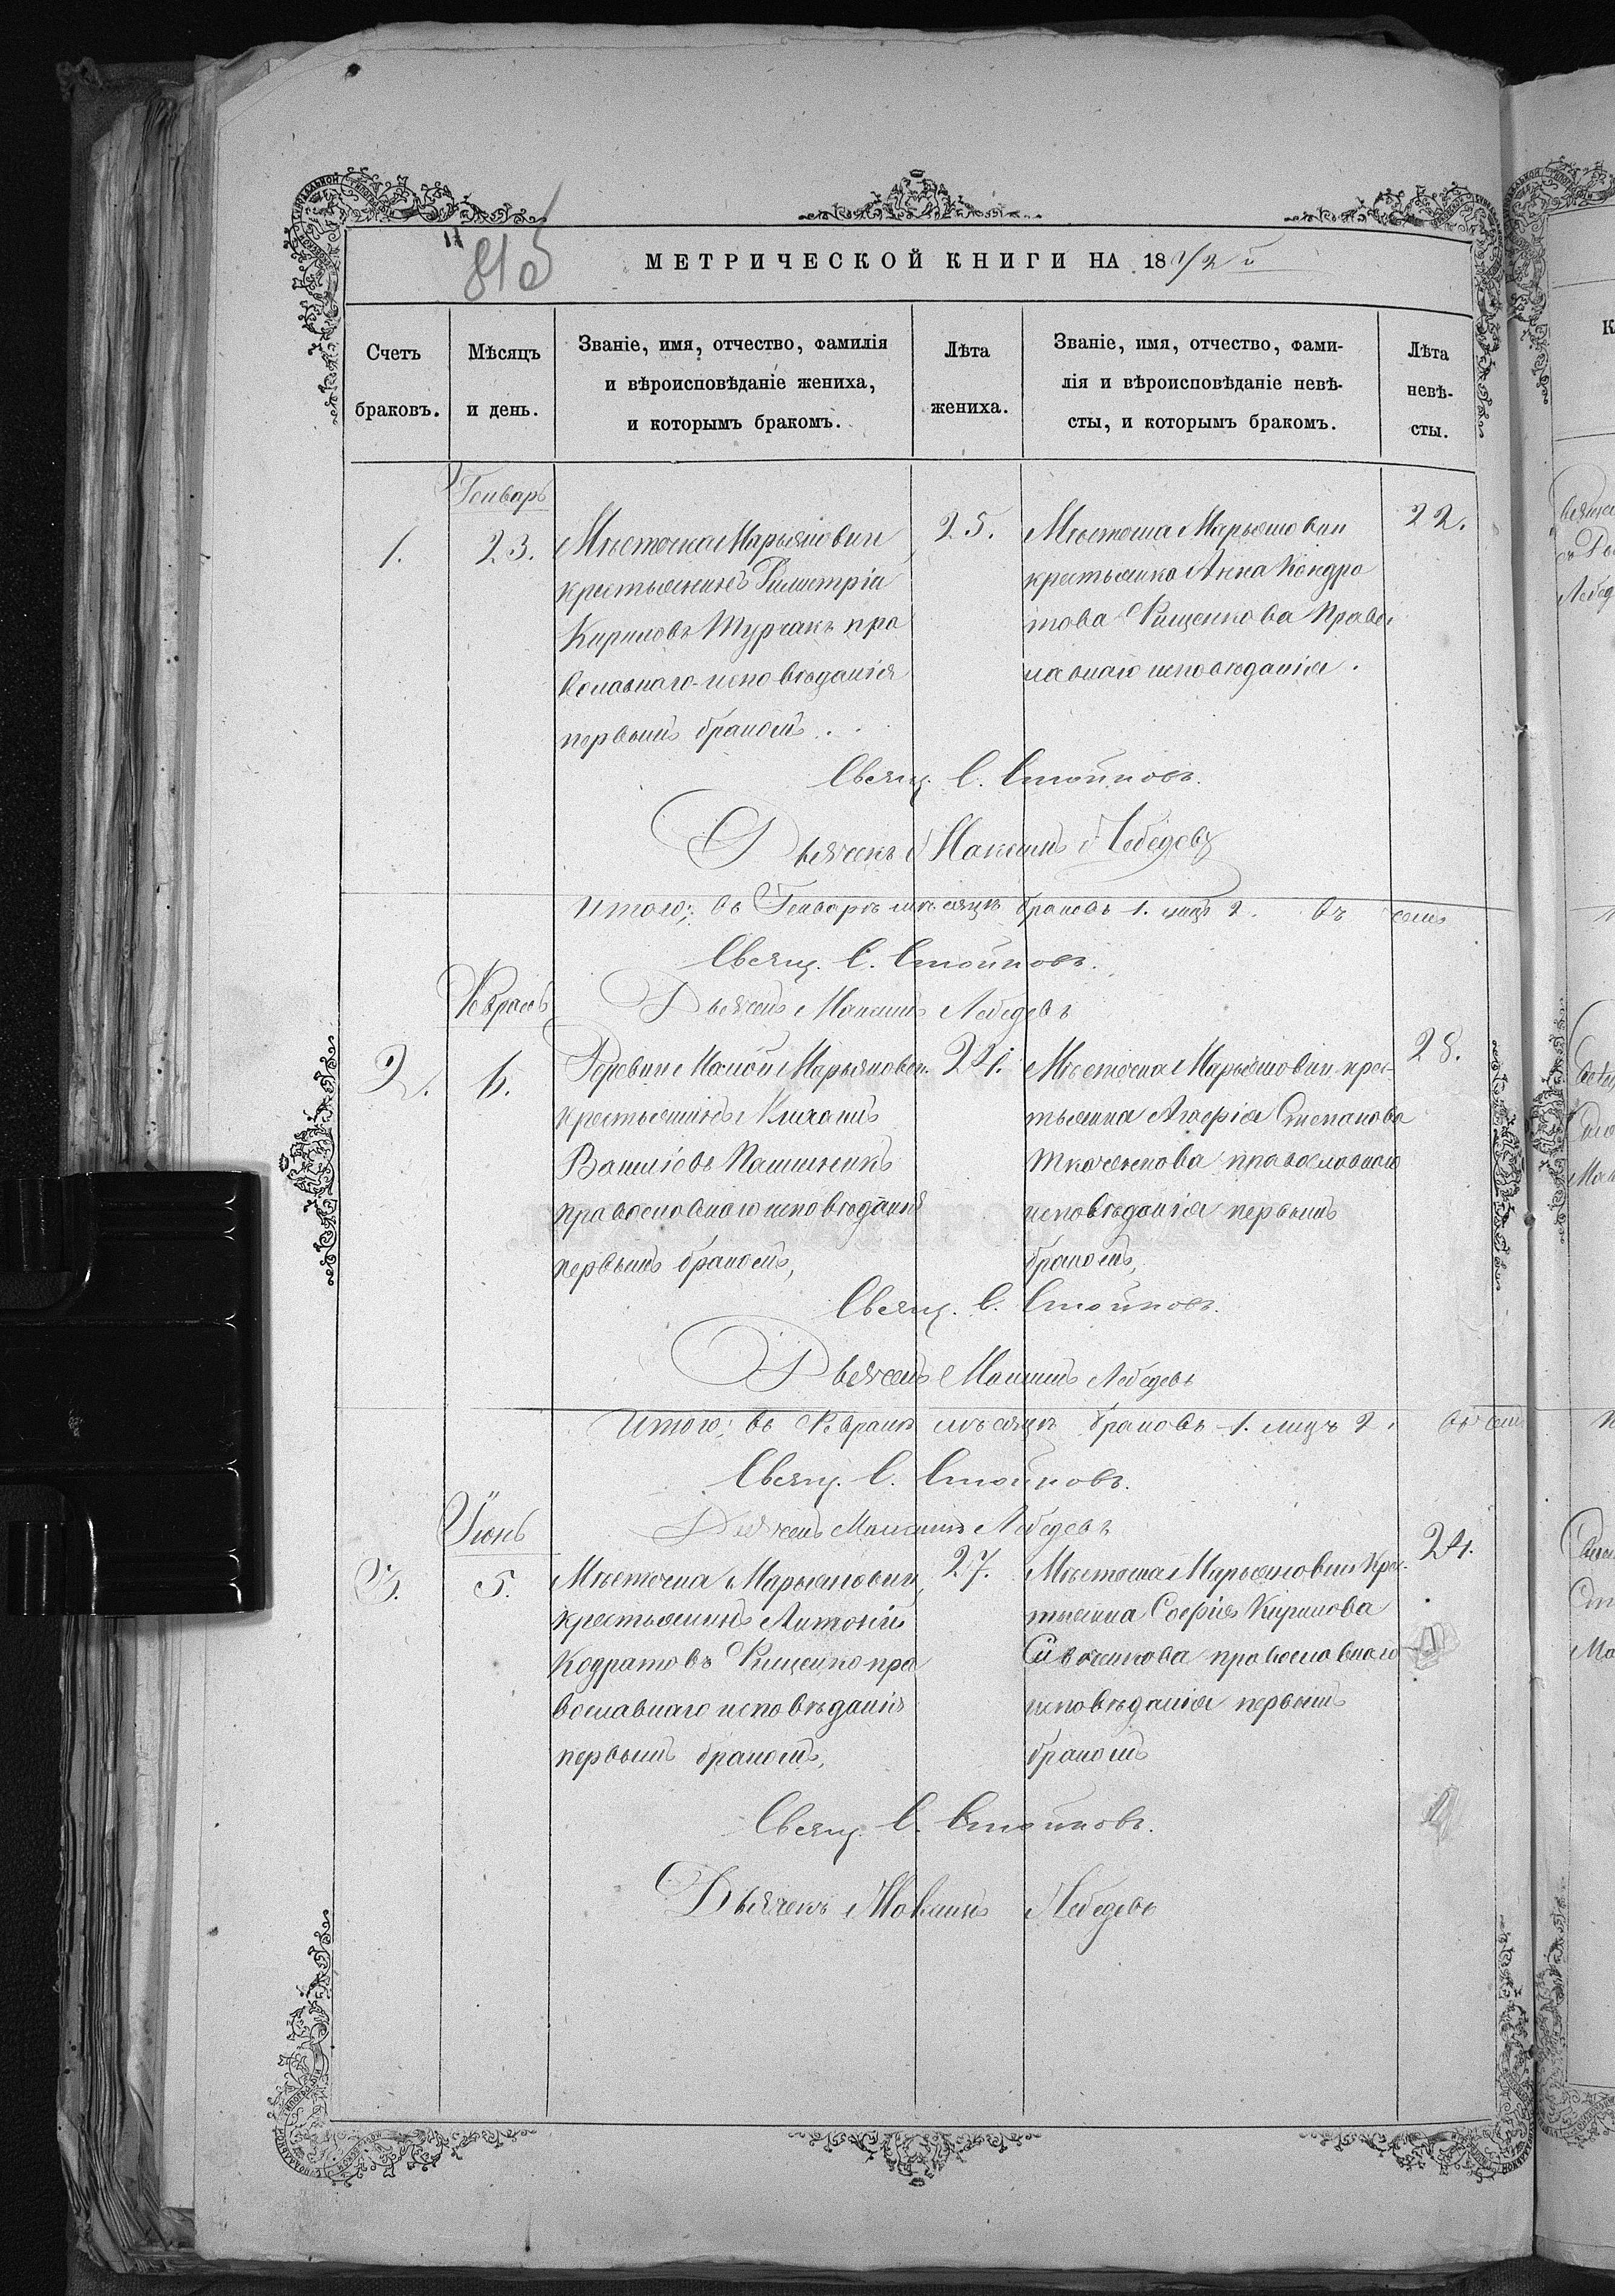 МЕТРИЧЕСКОЙ КНИГИ НА 18
Счетъ браковъ.
Мѣсяцъ и день.
Званіе, имя, отчество, фамилія
и вѣроисповѣданіе жениха,
и которымъ бракомъ.
Лѣта жениха.
Званіе, имя, отчество, фами-
лія и вѣроисповѣданіе невѣ-
сты, и которымъ бракомъ.
Лѣта невѣ-
сты.
Генварь
1.
23.
Мѣстечка Марьяновки
крестьянинъ Димитрій
Кириловъ Турчакъ пра
вославнаго исповѣданія
первымъ бракомъ.
25.
Мѣстечка Марьяновки
крестьянка Анна Кондра
това Рищенкова Правос
лавнаго исповѣданія.
22.
Свящ. С. Стойковъ.
Дьячекъ Максимъ Лебедевъ
Итого: въ Генварѣ мѣсяцѣ браковъ 1. лицъ 2.
Свящ. С. Стойковъ.
Февраль
Дьячекъ Максимъ Лебедевъ
2.
6.
Деревни Малой Марьяновки
крестьянинъ
православнаго исповѣданія
первымъ бракомъ,
24.
Мѣстечка Марьяновки крес-
тьянка Степанова
Ткаченкова православнаго
исповѣданія первымъ
бракомъ,
28.
Свящ. С. Стойковъ.
Дьячекъ Максимъ Лебедевъ
Итого: въ Февралѣ мѣсяцѣ браковъ 1. лицъ 2.
Свящ. С. Стойковъ.
Іюнь
Дьячекъ Максимъ Лебедевъ
3.
5.
Мѣстечка Марьяновки
крестьянинъ Антоній
Кодратовъ Рищенко пра
вославнаго исповѣданія
первымъ бракомъ,
27.
Мѣстечка Марьяновки Крес
тьянка Софія Кирилова
православнаго
исповѣданія первымъ
бракомъ
24.
Свящ. С. Стойковъ.
Дьячекъ Максимъ Лебедевъ